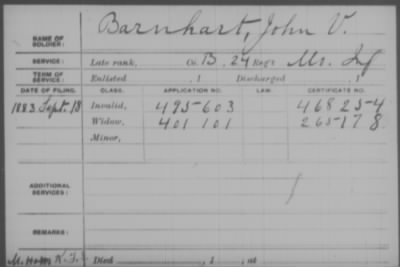 NAME OF SOLDIER: Barnhart, John V.
SERVICE: Late rank, Co. B, 24 Reg't Mo. Inf
TERM OF SERVICE: Enlisted , 1 Discharged , 1
DATE OF FILING. CLASS. APPLICATION NO. LAW. CERTIFICATE NO.
1883 Sept. 18 Invalid, 495-603 46825-4
Widow, 401 101 265-178
Minor,
ADDITIONAL SERVICES:
REMARKS:
Died , 1 , at